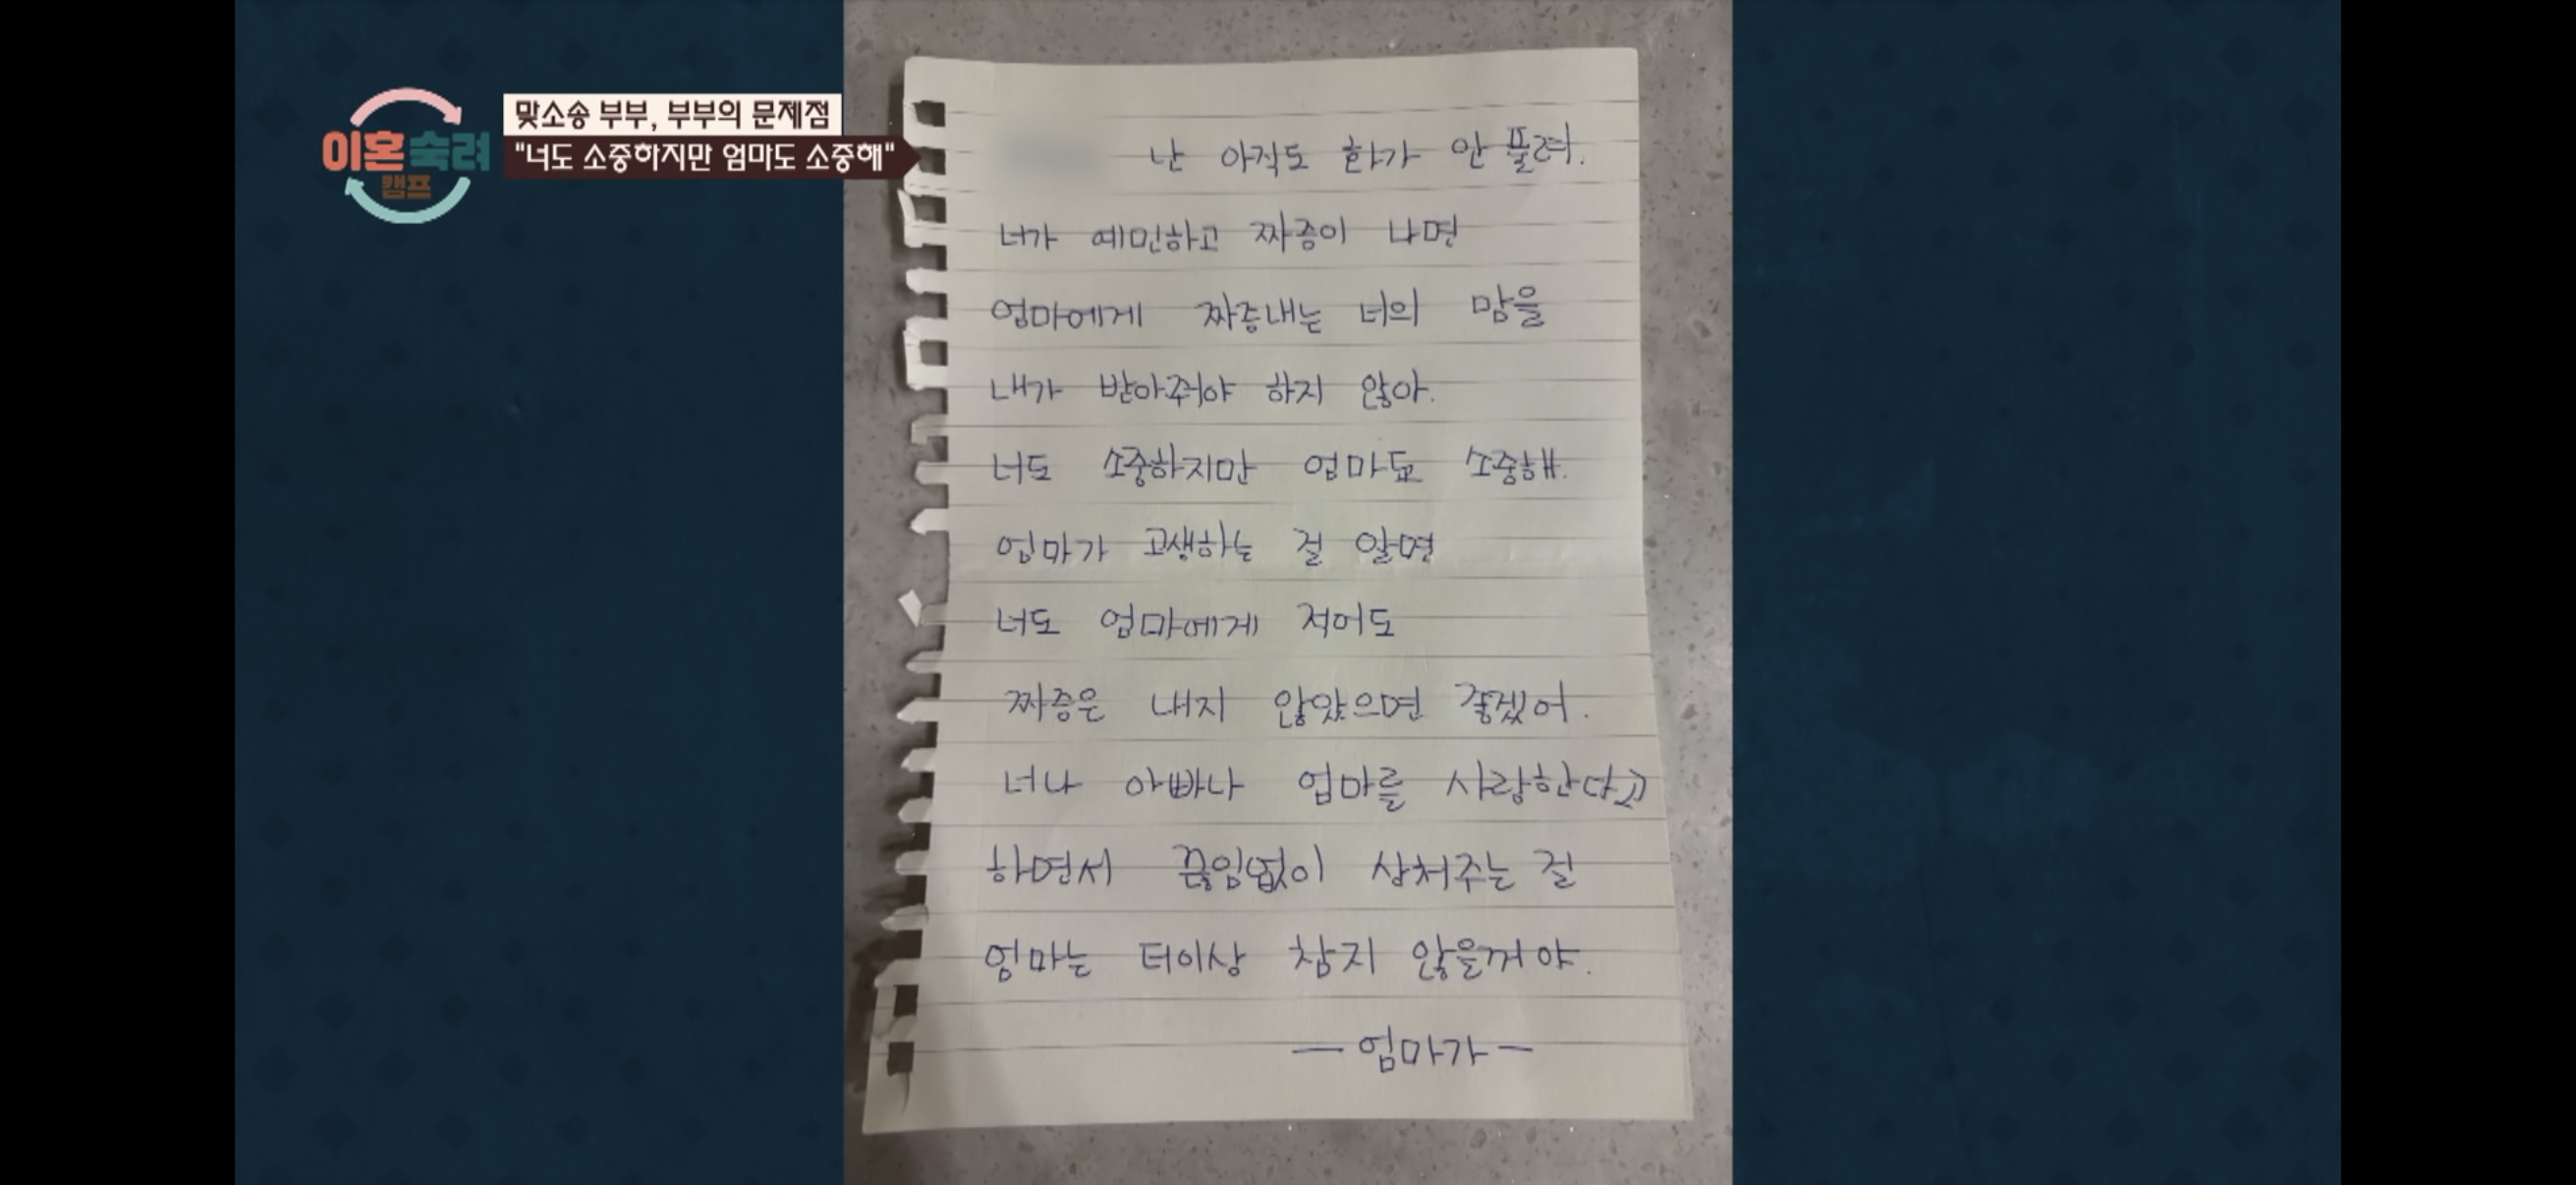 이혼숙려
캠프
맞소송 부부, 부부의 문제점
"너도 소중하지만 엄마도 소중해"
난 아직도 화가 안 풀려.
너가 예민하고 짜증이 나면
엄마에게 짜증내는 너의 맘을
내가 받아줘야 하지 않아.
너도 소중하지만 엄마도 소중해.
엄마가 고생하는 걸 알면
너도 엄마에게 적어도
짜증은 내지 않았으면 좋겠어.
너나 아빠나 엄마를 사랑한다고
하면서 끊임없이 상처주는 걸
엄마는 더이상 참지 않을꺼야.
— 엄마가 —